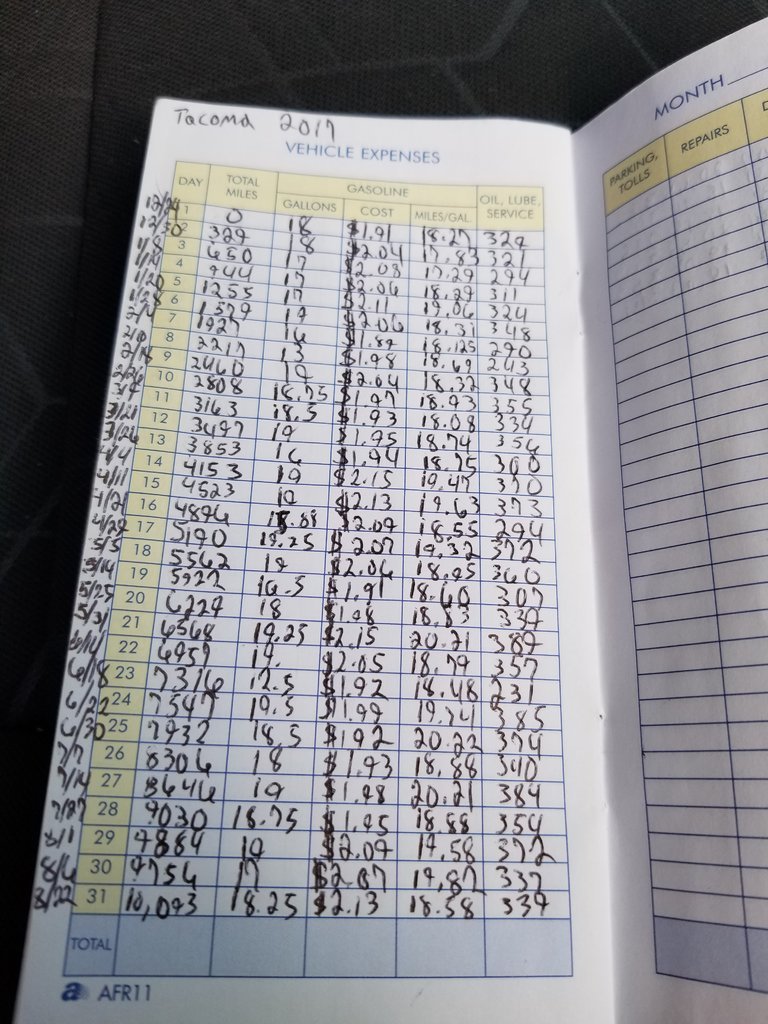 Tacoma 2017
VEHICLE EXPENSES
DAY TOTAL MILES GASOLINE OIL, LUBE, SERVICE
GALLONS COST MILES/GAL
12/24 1 0 18 $1.91 18.27 329
12/30 2 329 18 $2.04 17.83 321
1/8 3 650 17 $2.08 17.29 294
4 944 17 $2.06 18.29 311
1/20 5 1255 17 $2.11 19.06 324
1/28 6 1579 19 $2.06 18.31 348
7 1927 16 $1.89 18.125 290
8 2217 13 $1.98 18.69 243
2/18 9 2460 19 $2.04 18.32 348
2/26 10 2808 18.75 $1.97 18.93 355
3/9 11 3163 18.5 $1.93 18.08 334
3/21 12 3497 19 $1.95 18.74 356
3/26 13 3853 16 $1.94 18.75 300
4/4 14 4153 19 $2.15 19.47 370
4/11 15 4523 19 $2.13 19.63 373
4/21 16 4896 $2.09 18.55 294
4/29 17 5190 19.25 $2.07 19.32 372
5/5 18 5562 19 $2.06 18.95 360
5/14 19 5922 16.5 $1.91 18.60 307
5/25 20 6229 18 $1.98 18.83 339
5/31 21 6568 19.25 $2.15 20.21 389
6/14 22 6959 19. $2.05 18.79 357
6/18 23 7316 12.5 $1.92 18.48 231
6/22 24 7547 19.5 $1.99 19.74 385
6/30 25 7932 18.5 $1.92 20.22 374
7/7 26 8306 18 $1.93 18.88 340
7/14 27 8646 19 $1.98 20.21 384
7/27 28 9030 18.75 $1.95 18.88 354
8/1 29 9384 19 $2.09 19.58 372
8/6 30 9756 17 $2.07 19.82 337
8/22 31 10,093 18.25 $2.13 18.58 339
TOTAL
a AFR11
MONTH
PARKING, TOLLS REPAIRS D